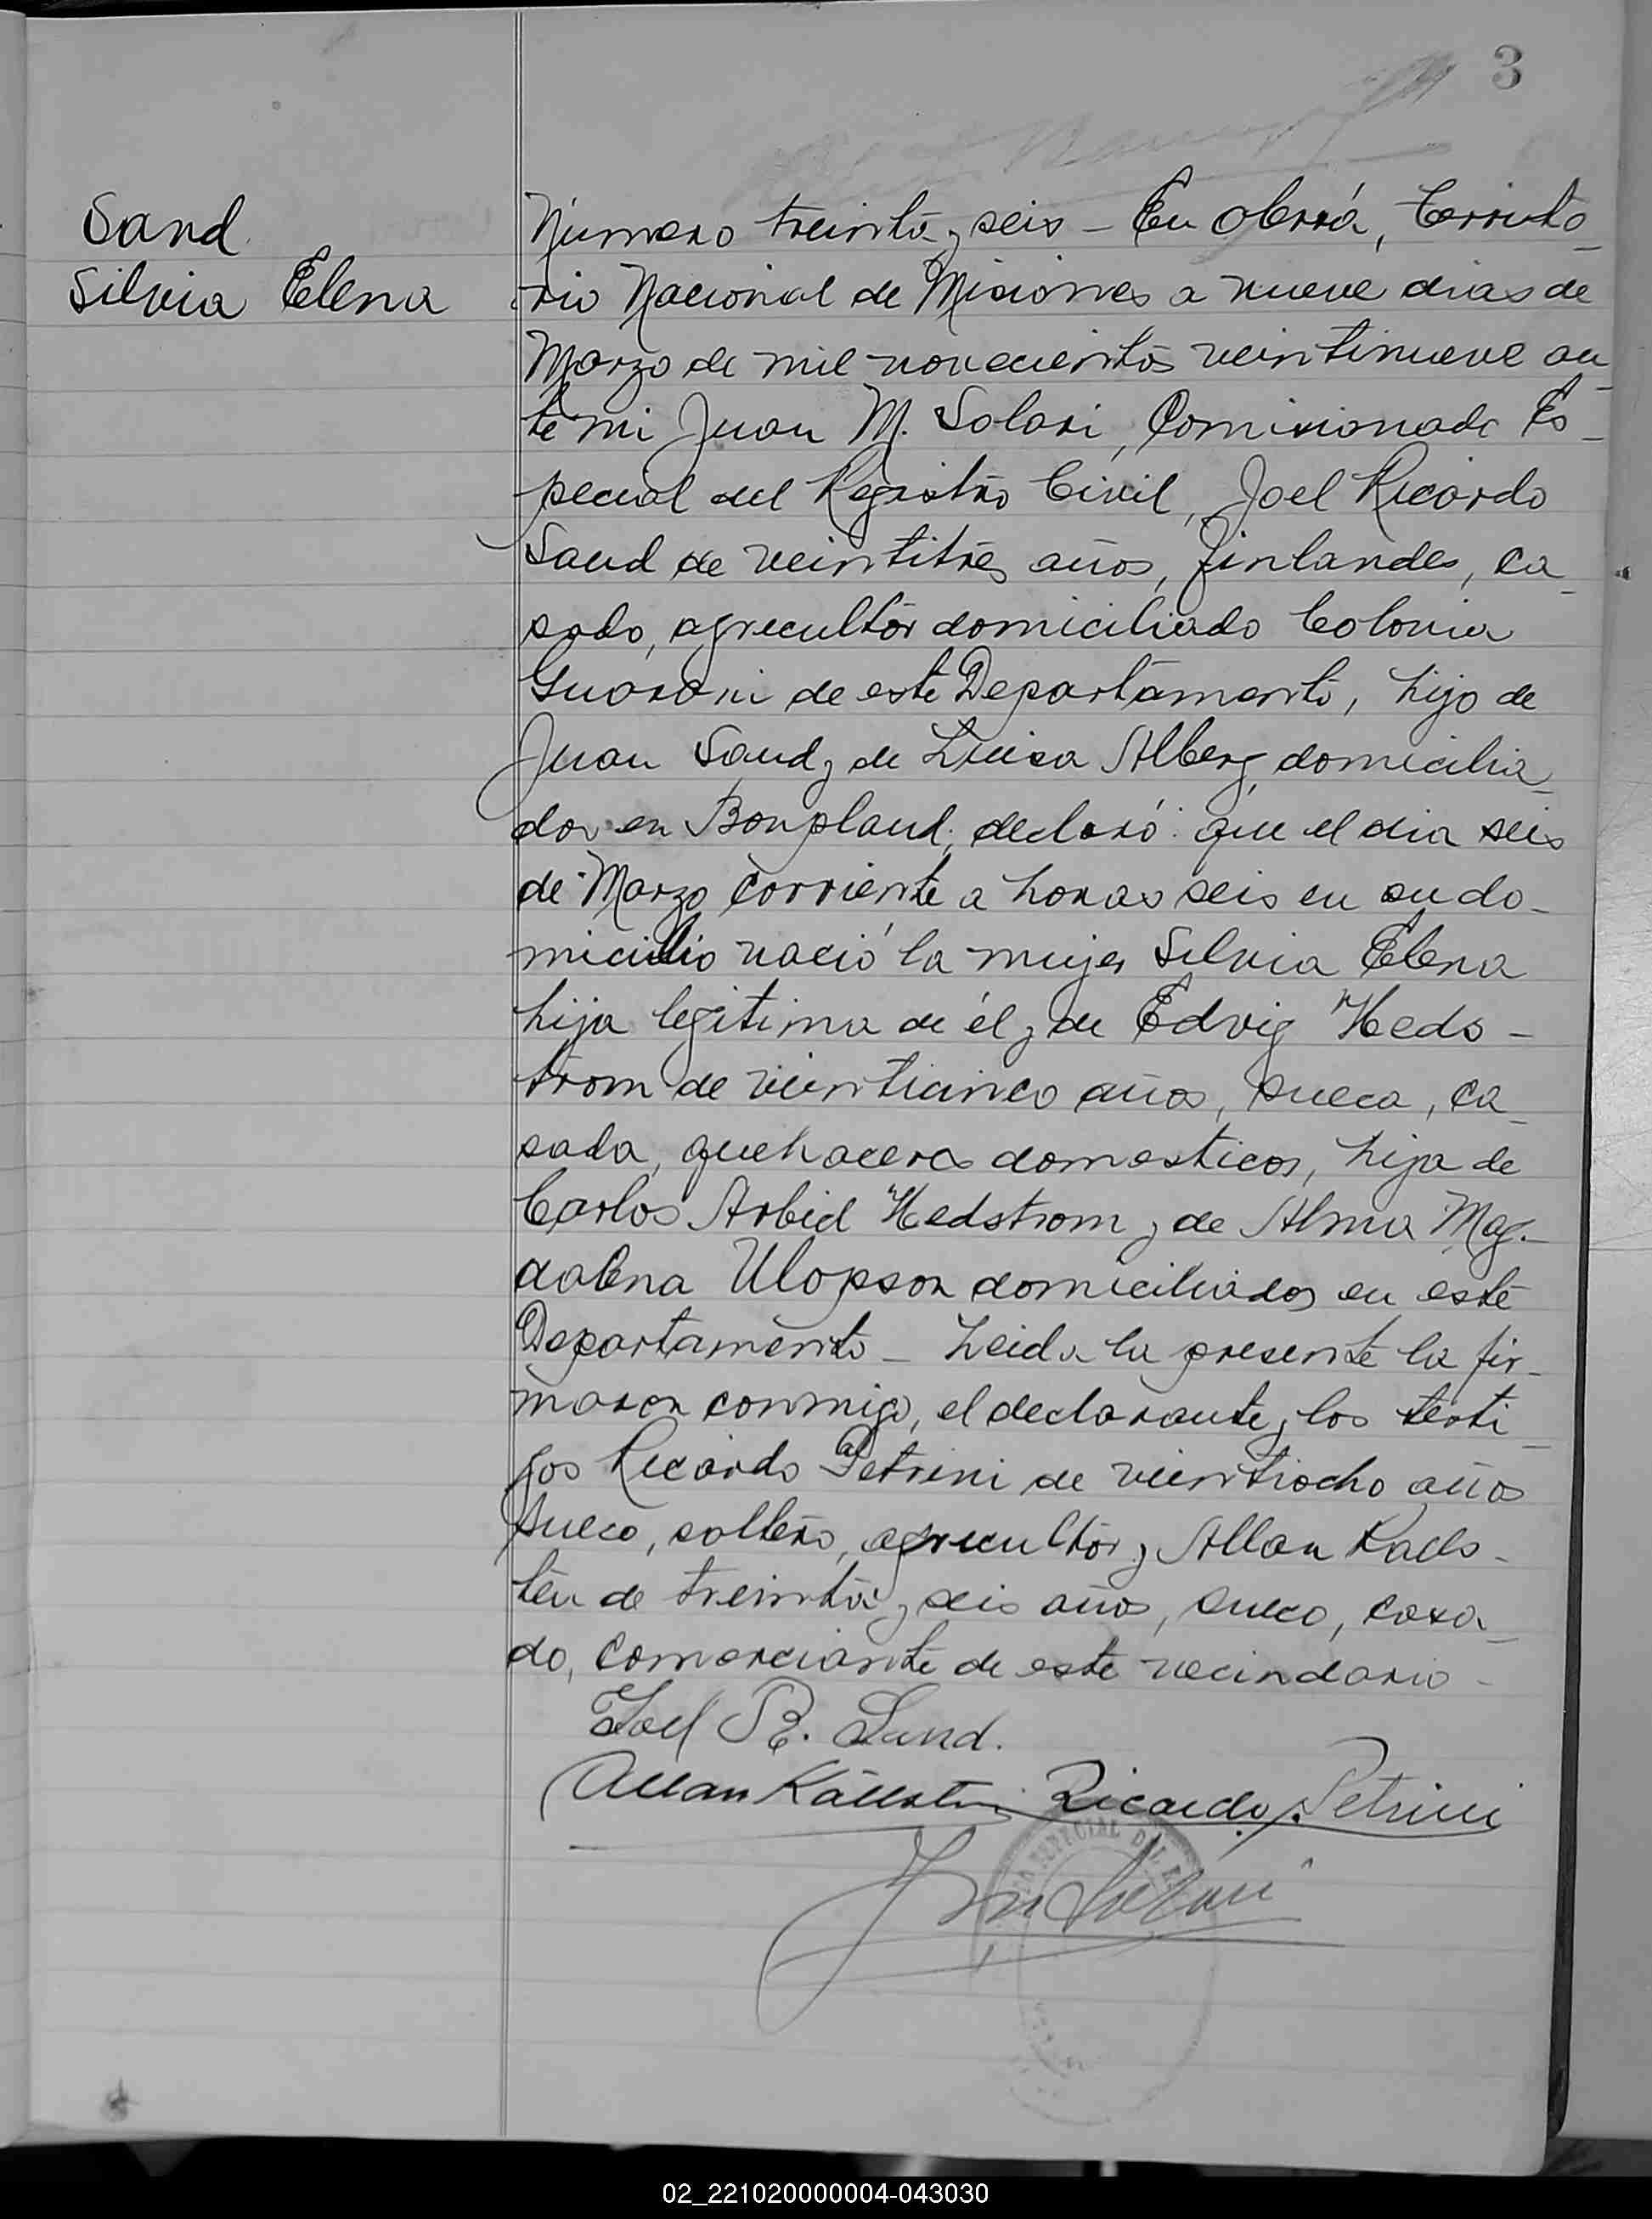 3
Sand
Silvia Elena
Número treinta y seis - En Oberá, Territo-
rio Nacional de Misiones a nueve dias de
Marzo de mil novecientos veintinueve an-
te mi Juan M. Solari, Comisionado Es-
pecial del Registro Civil, Joel Ricardo
Sand de veintitres años, finlandes, ca-
sado, agricultor domiciliado Colonia
Guarani de este Departamento, hijo de
Juan Sand y de Luisa Alberg, domicilia-
dos en Bonpland, declaró: que el dia seis
de Marzo corriente a horas seis en su do-
micilio nació la mujer Silvia Elena
hija legitima de él y de Edvig Heds-
trom de veinticinco años, sueca, ca-
sada, quehaceres domesticos, hija de
Carlos Arbid Hedstrom y de Alma Mag-
dalena Ulopson domiciliados en este
Departamento - Leida la presente la fir-
maron conmigo, el declarante y los testi-
gos Ricardo Petrini de veintiocho años
sueco, soltero, agricultor y Allan Kads-
ten de treinta y seis años, sueco, casa-
do, comerciante de este vecindario -
Joel R. Sand.
Allan Källsten Ricardo Petrini
ESPECIAL DEL
JM Solari
02_221020000004-043030